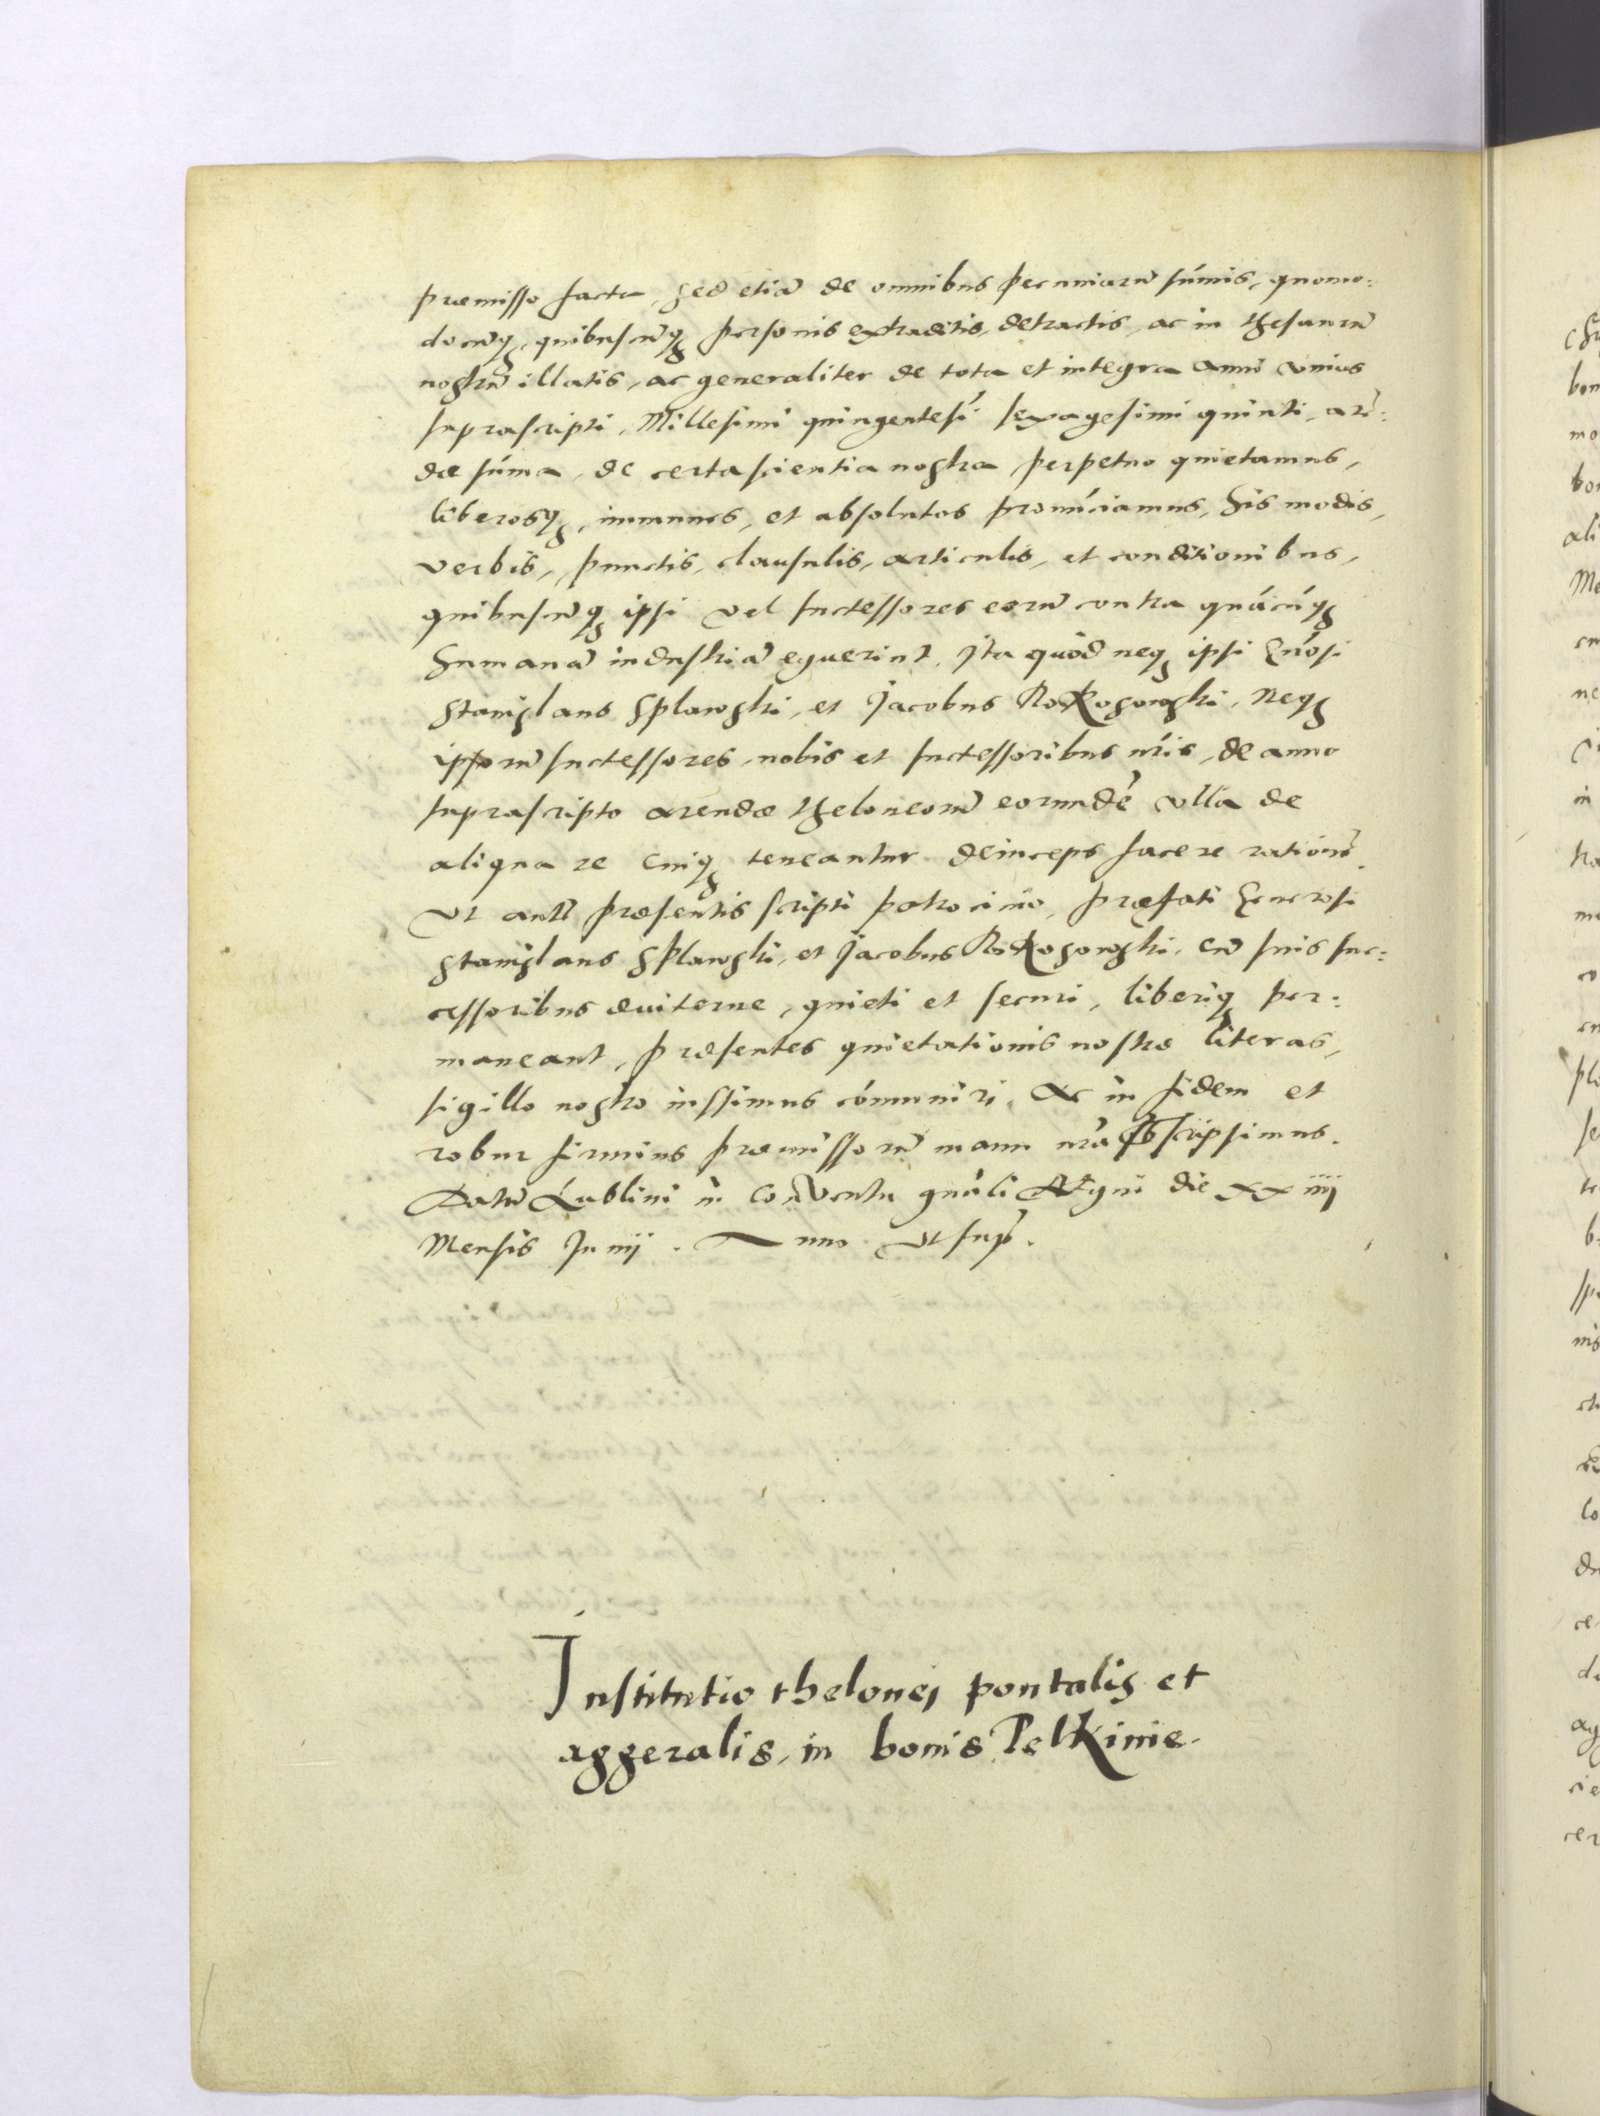 præmisso facta, sed etiā de omnibus pecuniarū sūmis, quomo:
docunq3, quibuscūq3 personis extraditis, detractis, ac in thesaurū
nostrū illatis, ac generaliter de tota et integra anni unius
suprascripti, Millesimi quingentesi sexagesimi quinti, arē:
dæ sūma, de certa scientia nostra perpetuo quietamus,
liberosq3, immunes, et absolutos pronūciamus, his modis,
verbis, punctis, clausulis, articulis, et conditionibus,
quibuscūq3 ipsi vel successores eorū contra quācūq3
humanā industriā eguerint. Ita quod neq3 ipsi Gn̄osi
Stanislaus Splawski, et Jacobus RoKosowski, Neq3
ipsorū successores, nobis et successoribus nr̄is, de anno
suprascripto arendæ theloneorū eorundē ulla de
aliqua re cuiq3 teneantur deinceps facere rationē.
Vt aūt præsentis scripti patrocinio, præfati Generosi
Stanislaus Splawski, et Jacobus RoKosowski, cū suis suc:
cessoribus æuiterne, quieti et securi, liberiq3 per:
maneant, præsentes quietationis nostræ literas,
sigillo nostro iussimus cōmuniri. Ac in fidem et
robur firmius præmissorū manu nr̄a sbscripsimus.
Datū Lublini in Conventu gnāli Regni die xx iiij
Mensis Junij. Anno vt supr̄.
Institutio thelonej pontalis et
aggeralis, in bonis PelKinie.